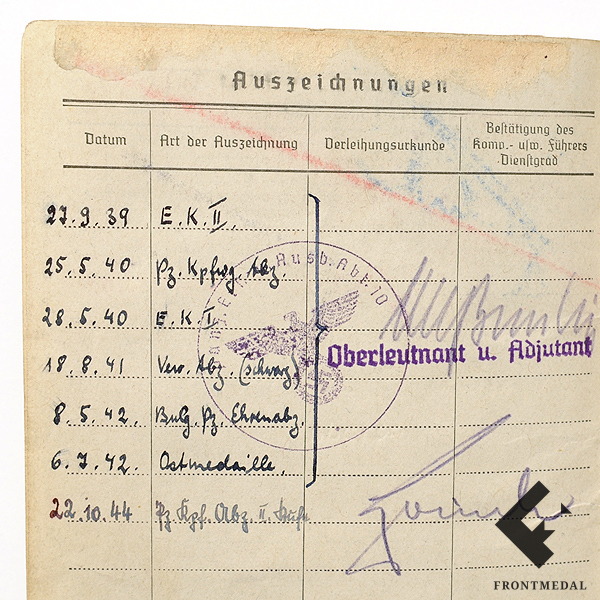 Auszeichnungen
Datum Art der Auszeichnung Verleihungsurkunde Bestätigung des
Komp.- usw. Führers
Dienstgrad
27.9.39 E.K.II.
25.5.40 Pz.Kpfwg.Abz.
28.5.40 E.K.I
Oberleutnant u. Adjutant
18.8.41 Verw.Abz. (schwarz)
8.5.42. Bulg.Pz.Ehrenabz.
6.7.42. Ostmedaille.
22.10.44 Pz.Kpf.Abz. II. Stufe
Ausb.Abt.10
FRONTMEDAL